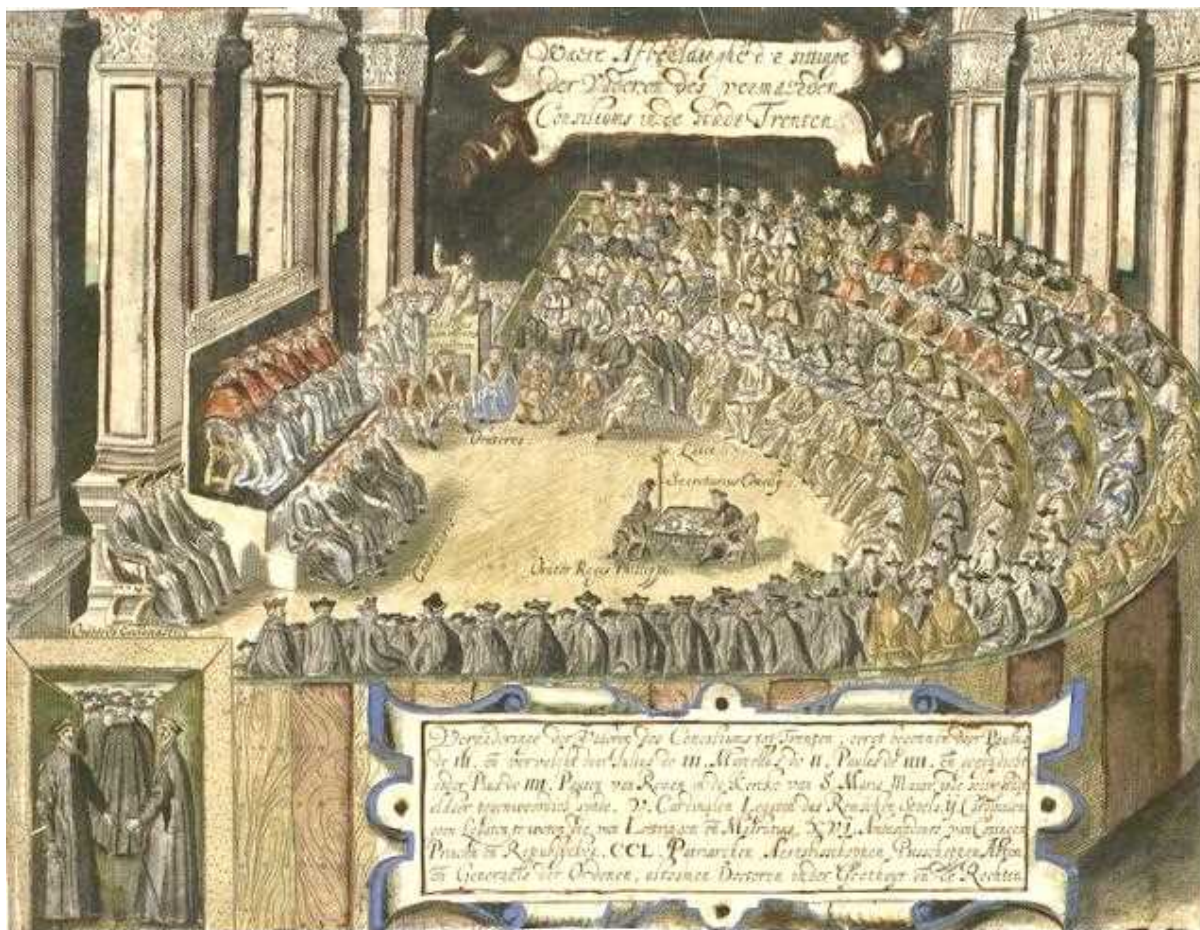 Waere Afbeeldinghe d'e sittinge
der Vaderen des vermaerden
Consiliums in de Stadt Trenten
Oratores
Lector
Secretarius Concilij
Orator Regis Philippi
Vergaderinge der Vaderen des Consiliums tot Trenten, eerst begonnen door Paulus
de III. en vervolcht door Julius de III. Marcellus de II. Paulus de IIII. en
door Pius de IIII. Pausen van Romen in de Kercke van S. Maria Maior,
aldaer tegenwoordich V. Cardinalen Legaten des Roomschen Stoels, ij Cardinalen
geen Legaten te weten die van Lottringen en Madrutius, XVI. Ambassadeurs van Coningen
Princen en Republycken, CCL. Patriarchen Aertsbisschoppen, Bisschoppen Abten
en Generaels der Ordenen, Doctoren in der Godtheyt en de Rechten